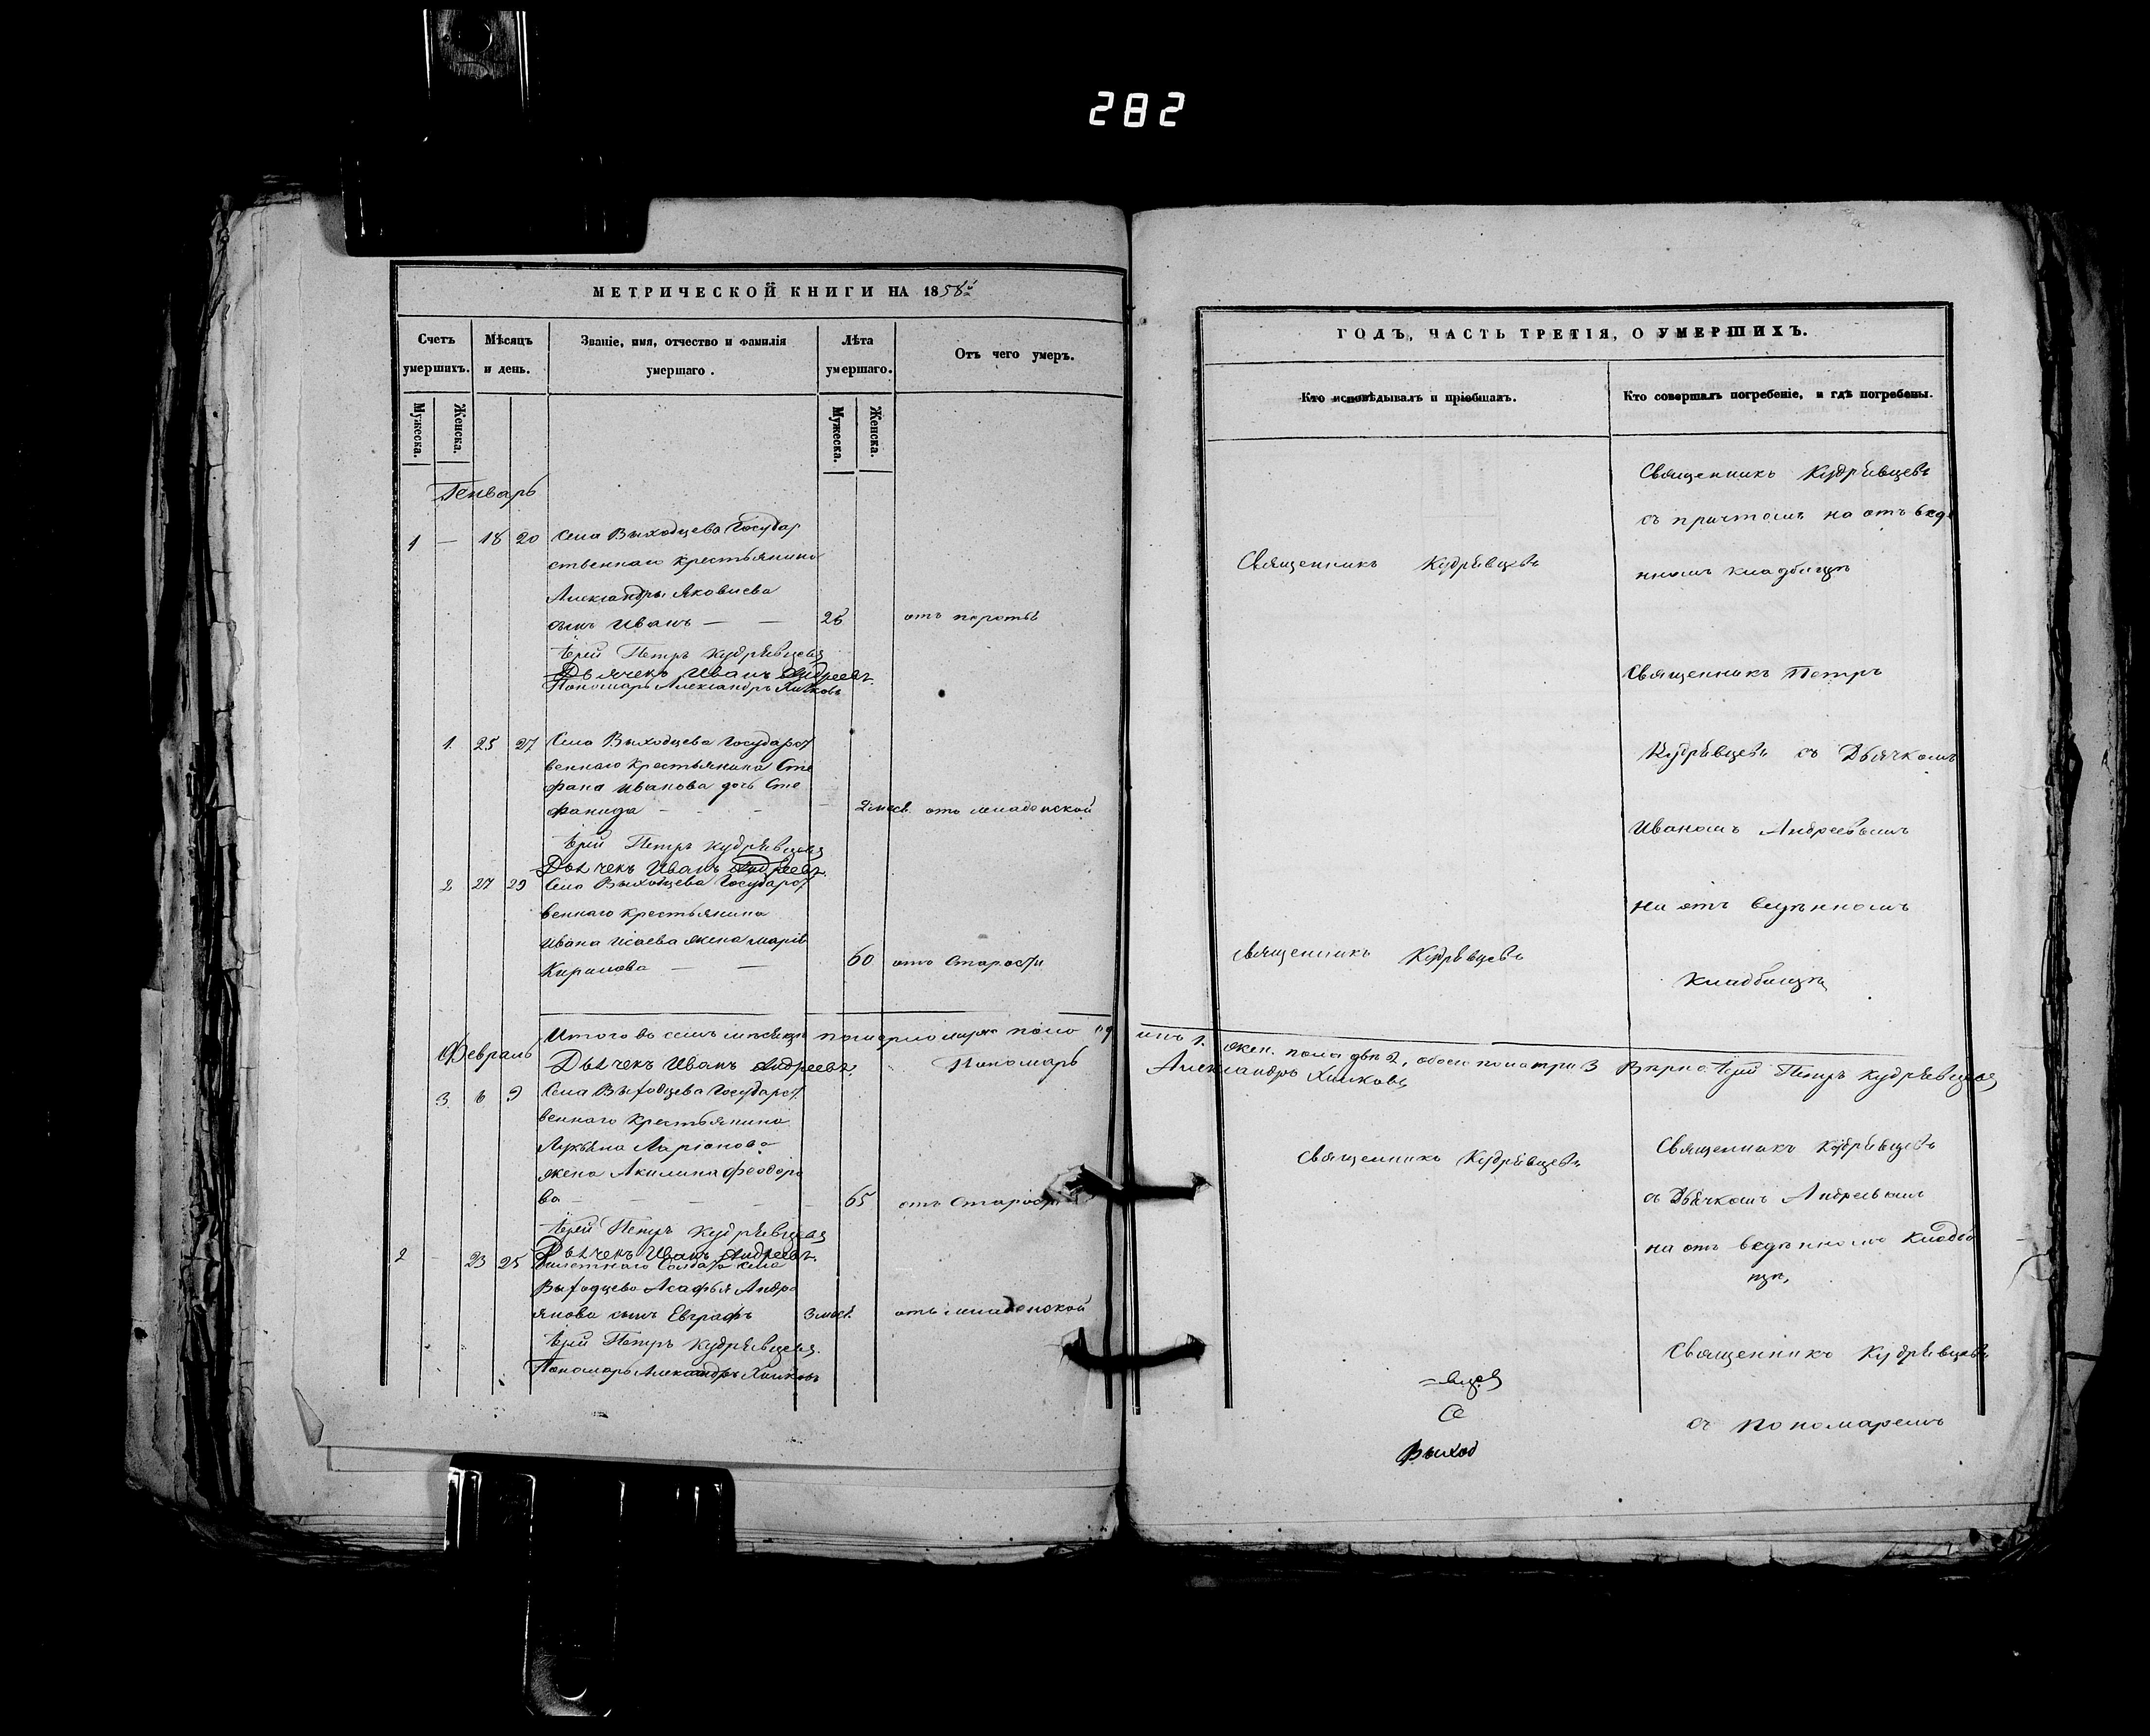 282
МЕТРИЧЕСКОЙ КНИГИ НА 1858й
Счетъ умершихъ.
Мѣсяцъ и день.
Званіе, имя, отчество и фамилія умершаго.
Лѣта умершаго.
Отъ чего умеръ.
Мужеска.
Женска.
Мужеска.
Женска.
Генварь
1 — 18 20 Села Выходцева Государ
ственнаго крестьянина
Александры Яковлева
сынъ Иванъ — — 26
Іерей Петръ Кудрявцевъ
Дьячекъ Иванъ Андреевъ.
Пономарь Александръ Хилковъ
1. 25 27 Села Выходцева Государст
веннаго крестьянина Сте
фана Иванова дочь Сте
фанида — — — 2 мѣс. отъ младенской
Іерей Петръ Кудрявцевъ
Дьячекъ Иванъ Андреевъ.
2 27 29 Села Выходцева Государст
веннаго крестьянина
Ивана Исаева жена Марія
— — 60 отъ Старости
Итого въ семъ мѣсяцѣ померло муж. пола
Дьячекъ Иванъ Андреевъ. Пономарь
Февраль
3. 6 9 Села Выходцева Государст
веннаго крестьянина
Лукьяна Ларіонова
жена Акилина Феодоро
ва — — — — 65 отъ Старости
Іерей Петръ Кудрявцевъ
Дьячекъ Иванъ Андреевъ.
2 — 23 25 Билетнаго Солдата села
Выходцева Асафья Андро
янова сынъ Евграфъ 3 мѣс. отъ младенской
Іерей Петръ Кудрявцевъ.
Пономарь Александръ Хилковъ
ГОДЪ, ЧАСТЬ ТРЕТІЯ, О УМЕРШИХЪ.
Кто исповѣдывалъ и пріобщалъ.
Кто совершалъ погребеніе, и гдѣ погребены.
Священникъ Кудрявцевъ
съ причтомъ на отъведе
Священникъ Кудрявцевъ
нномъ кладбищѣ
Священникъ Петръ
Кудрявцевъ съ Дьячкомъ
Иваномъ Андреевымъ
на отъ веденномъ
Священникъ Кудрявцевъ
Кладбищѣ
инъ 1. жен. пола двѣ 2, обоего пола три 3 Вѣрно: Іерей Петръ Кудрявцевъ
Александръ Хилковъ
Священникъ Кудрявцевъ
Священникъ Кудрявцевъ
съ Дьячкомъ Андреевымъ
на отъ веденномъ Кладби
щѣ,
Священникъ Кудрявцевъ
съ Пономаремъ
Се
Выход